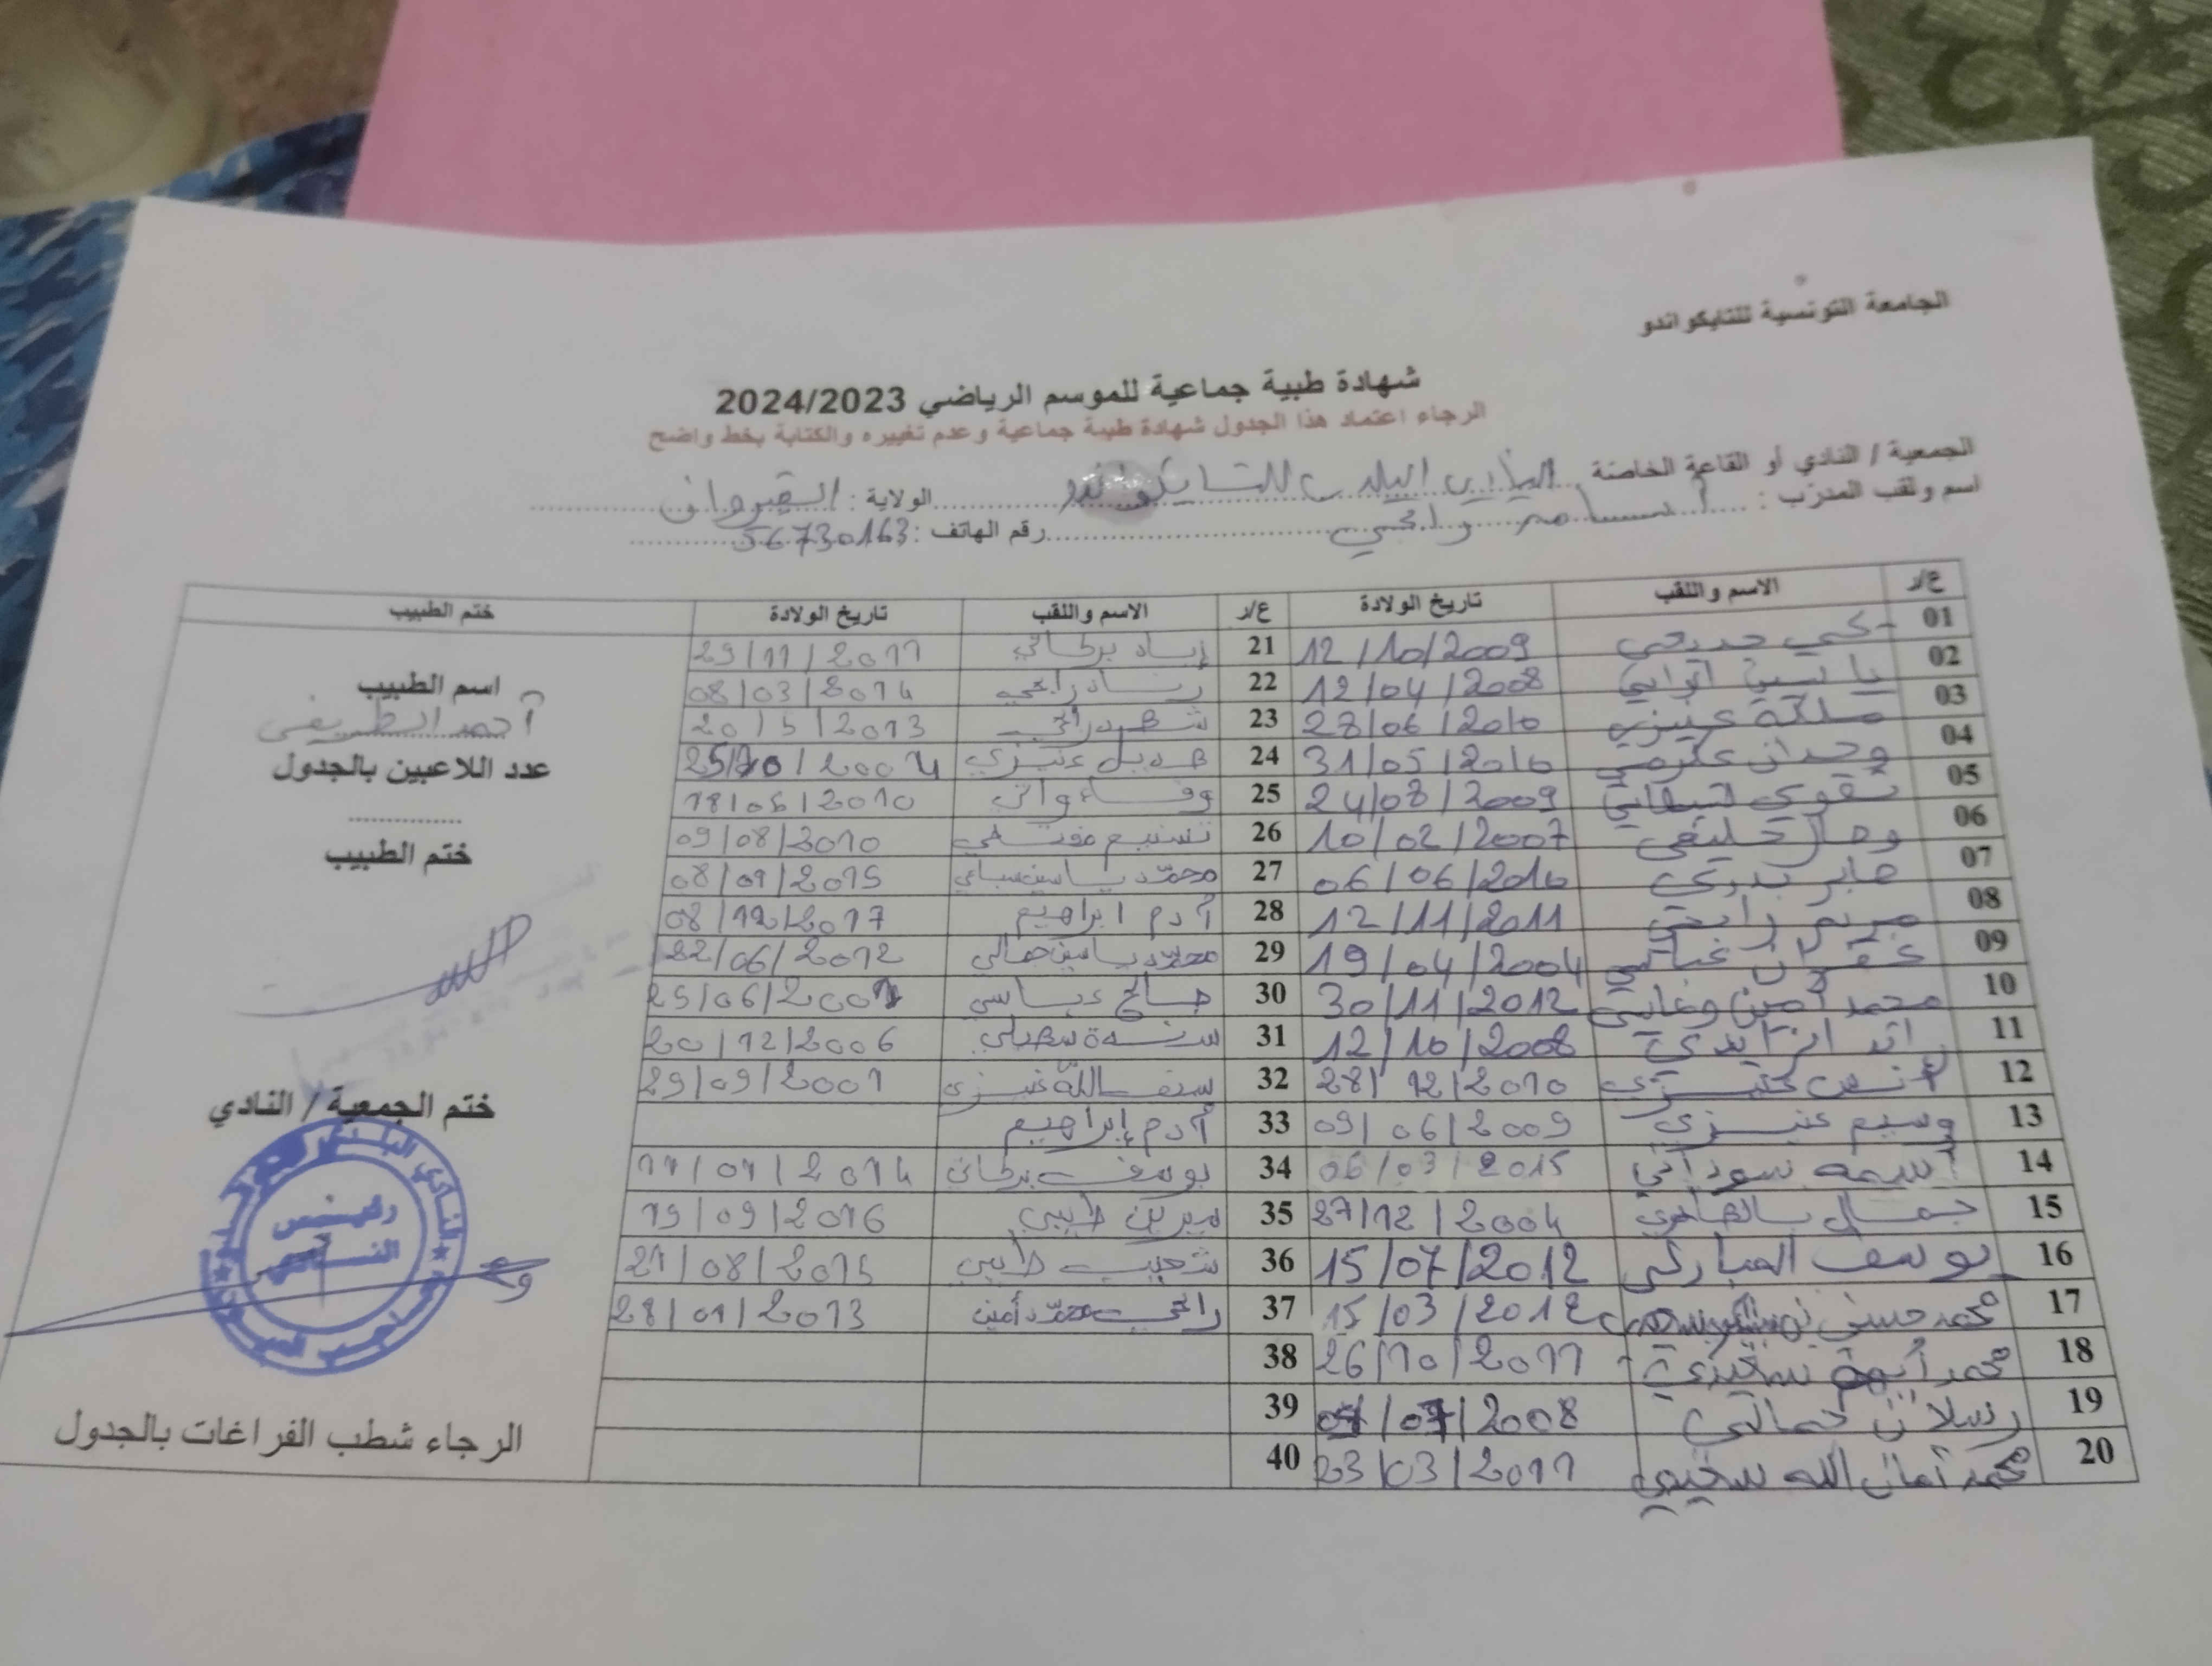 الجامعة التونسية للتايكواندو
شهادة طبية جماعية للموسم الرياضي 2024/2023
الرجاء اعتماد هذا الجدول شهادة طبية جماعية وعدم تغييره والكتابة بخط واضح
الجمعية / النادي أو القاعة الخاصة النادي البلدي للتايكواندو الولاية : القيروان
اسم ولقب المدرّب : أسامة رابحي رقم الهاتف : 56730163
ع/ر الاسم واللقب تاريخ الولادة ع/ر الاسم واللقب تاريخ الولادة ختم الطبيب
01 12/10/2009 21 إياد بركاتي 29/11/2011
02 ياسين 12/04/2008 22 08/03/2014
03 ملكة عنيزي 28/06/2010 23 20/5/2013
04 31/05/2010 24 هديل عنيزي 25/10/2004
05 تقوى 24/08/2009 25 وفاء 18/05/2010
06 خليفي 10/02/2007 26 تسنيم 09/08/2010
07 صابر بدري 06/06/2010 27 محمد ياسين سباعي 08/01/2015
08 مريم رابحي 12/11/2011 28 آدم ابراهيم 08/12/2017
09 19/04/2004 29 محمد ياسين جمالي 22/06/2012
10 محمد أمين 30/11/2012 30 صالح عباسي 25/06/2001
11 12/10/2008 31 20/12/2006
12 أنس عنيزي 28/12/2010 32 سيف الله عنيزي 29/09/2001
13 وسيم عنيزي 09/06/2009 33 آدم إبراهيم
14 سوداني 06/03/2015 34 يوسف بركاتي 11/01/2014
15 جمال بالهادي 27/12/2004 35 طيبي 19/09/2016
16 يوسف المباركي 15/07/2012 36 شعيب طيبي 21/08/2015
17 محمد حسني 15/03/2012 37 رابحي محمد أمين 28/01/2013
18 محمد سعيدي 26/10/2011 38
19 رسلان جمالي 2008 39
20 محمد أمان الله سعيدي 23/03/2011 40
اسم الطبيب
أحمد الطريفي
عدد اللاعبين بالجدول
ختم الطبيب
ختم الجمعية / النادي
رئيس
الرجاء شطب الفراغات بالجدول